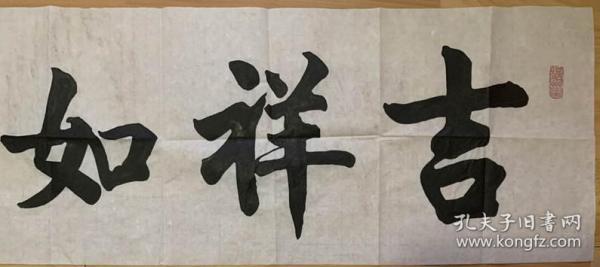 吉祥如
孔夫子旧書网
www.kongfz.com